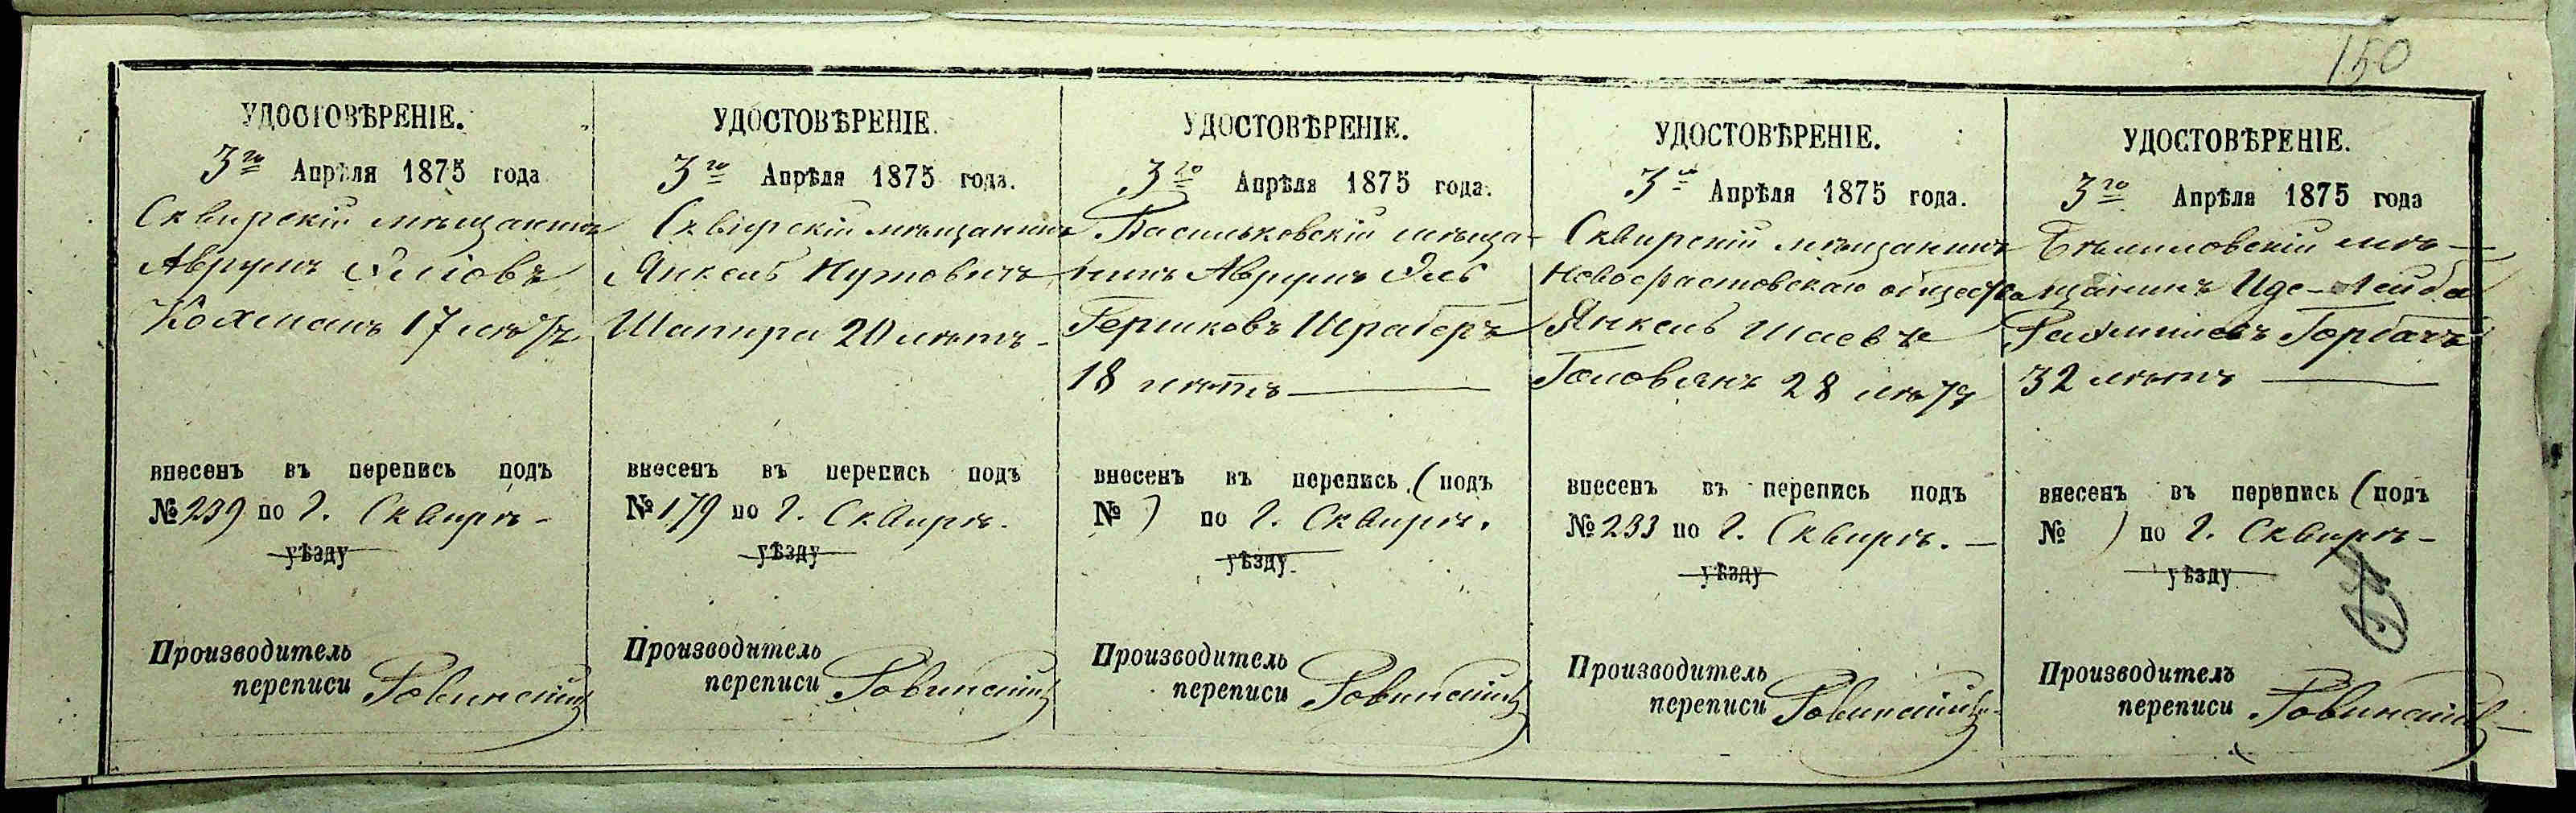 150
УДОСТОВѢРЕНІЕ.
3го Апрѣля 1875 года
Сквирскій мѣщанинъ
Аврумъ
Кохманъ 17 лѣтъ
внесенъ въ перепись подъ
№ 239 по г. Сквирѣ -
уѣзду
Производитель
переписи Ровинскій
УДОСТОВѢРЕНІЕ.
3го Апрѣля 1875 года.
Сквирскій мѣщанинъ
Янкель Нутовичъ
Шапира 20 лѣтъ -
внесенъ въ перепись подъ
№ 179 по г. Сквирѣ.
уѣзду
Производитель
переписи Ровинскій
УДОСТОВѢРЕНІЕ.
3го Апрѣля 1875 года.
Васильковскій мѣща-
нинъ Аврумъ Эль
Гершковъ Шраберъ
18 лѣтъ —
внесенъ въ перепись (подъ
№ ) по г. Сквирѣ.
уѣзду
Производитель
переписи Ровинскій
УДОСТОВѢРЕНІЕ.
3го Апрѣля 1875 года.
Сквирскій мѣщанинъ
Новофастовскаго общества
Янкель Шаевъ
Головянъ 28 лѣтъ
внесенъ въ перепись подъ
№ 233 по г. Сквирѣ. —
уѣзду
Производитель
переписи Ровинскій
УДОСТОВѢРЕНІЕ.
3го Апрѣля 1875 года
мѣ-
щанинъ Иде-Лейба
Рахмилевъ Горбачъ
32 лѣтъ —
внесенъ въ перепись (подъ
№ ) по г. Сквирѣ -
уѣзду
Производитель
переписи Ровинскій